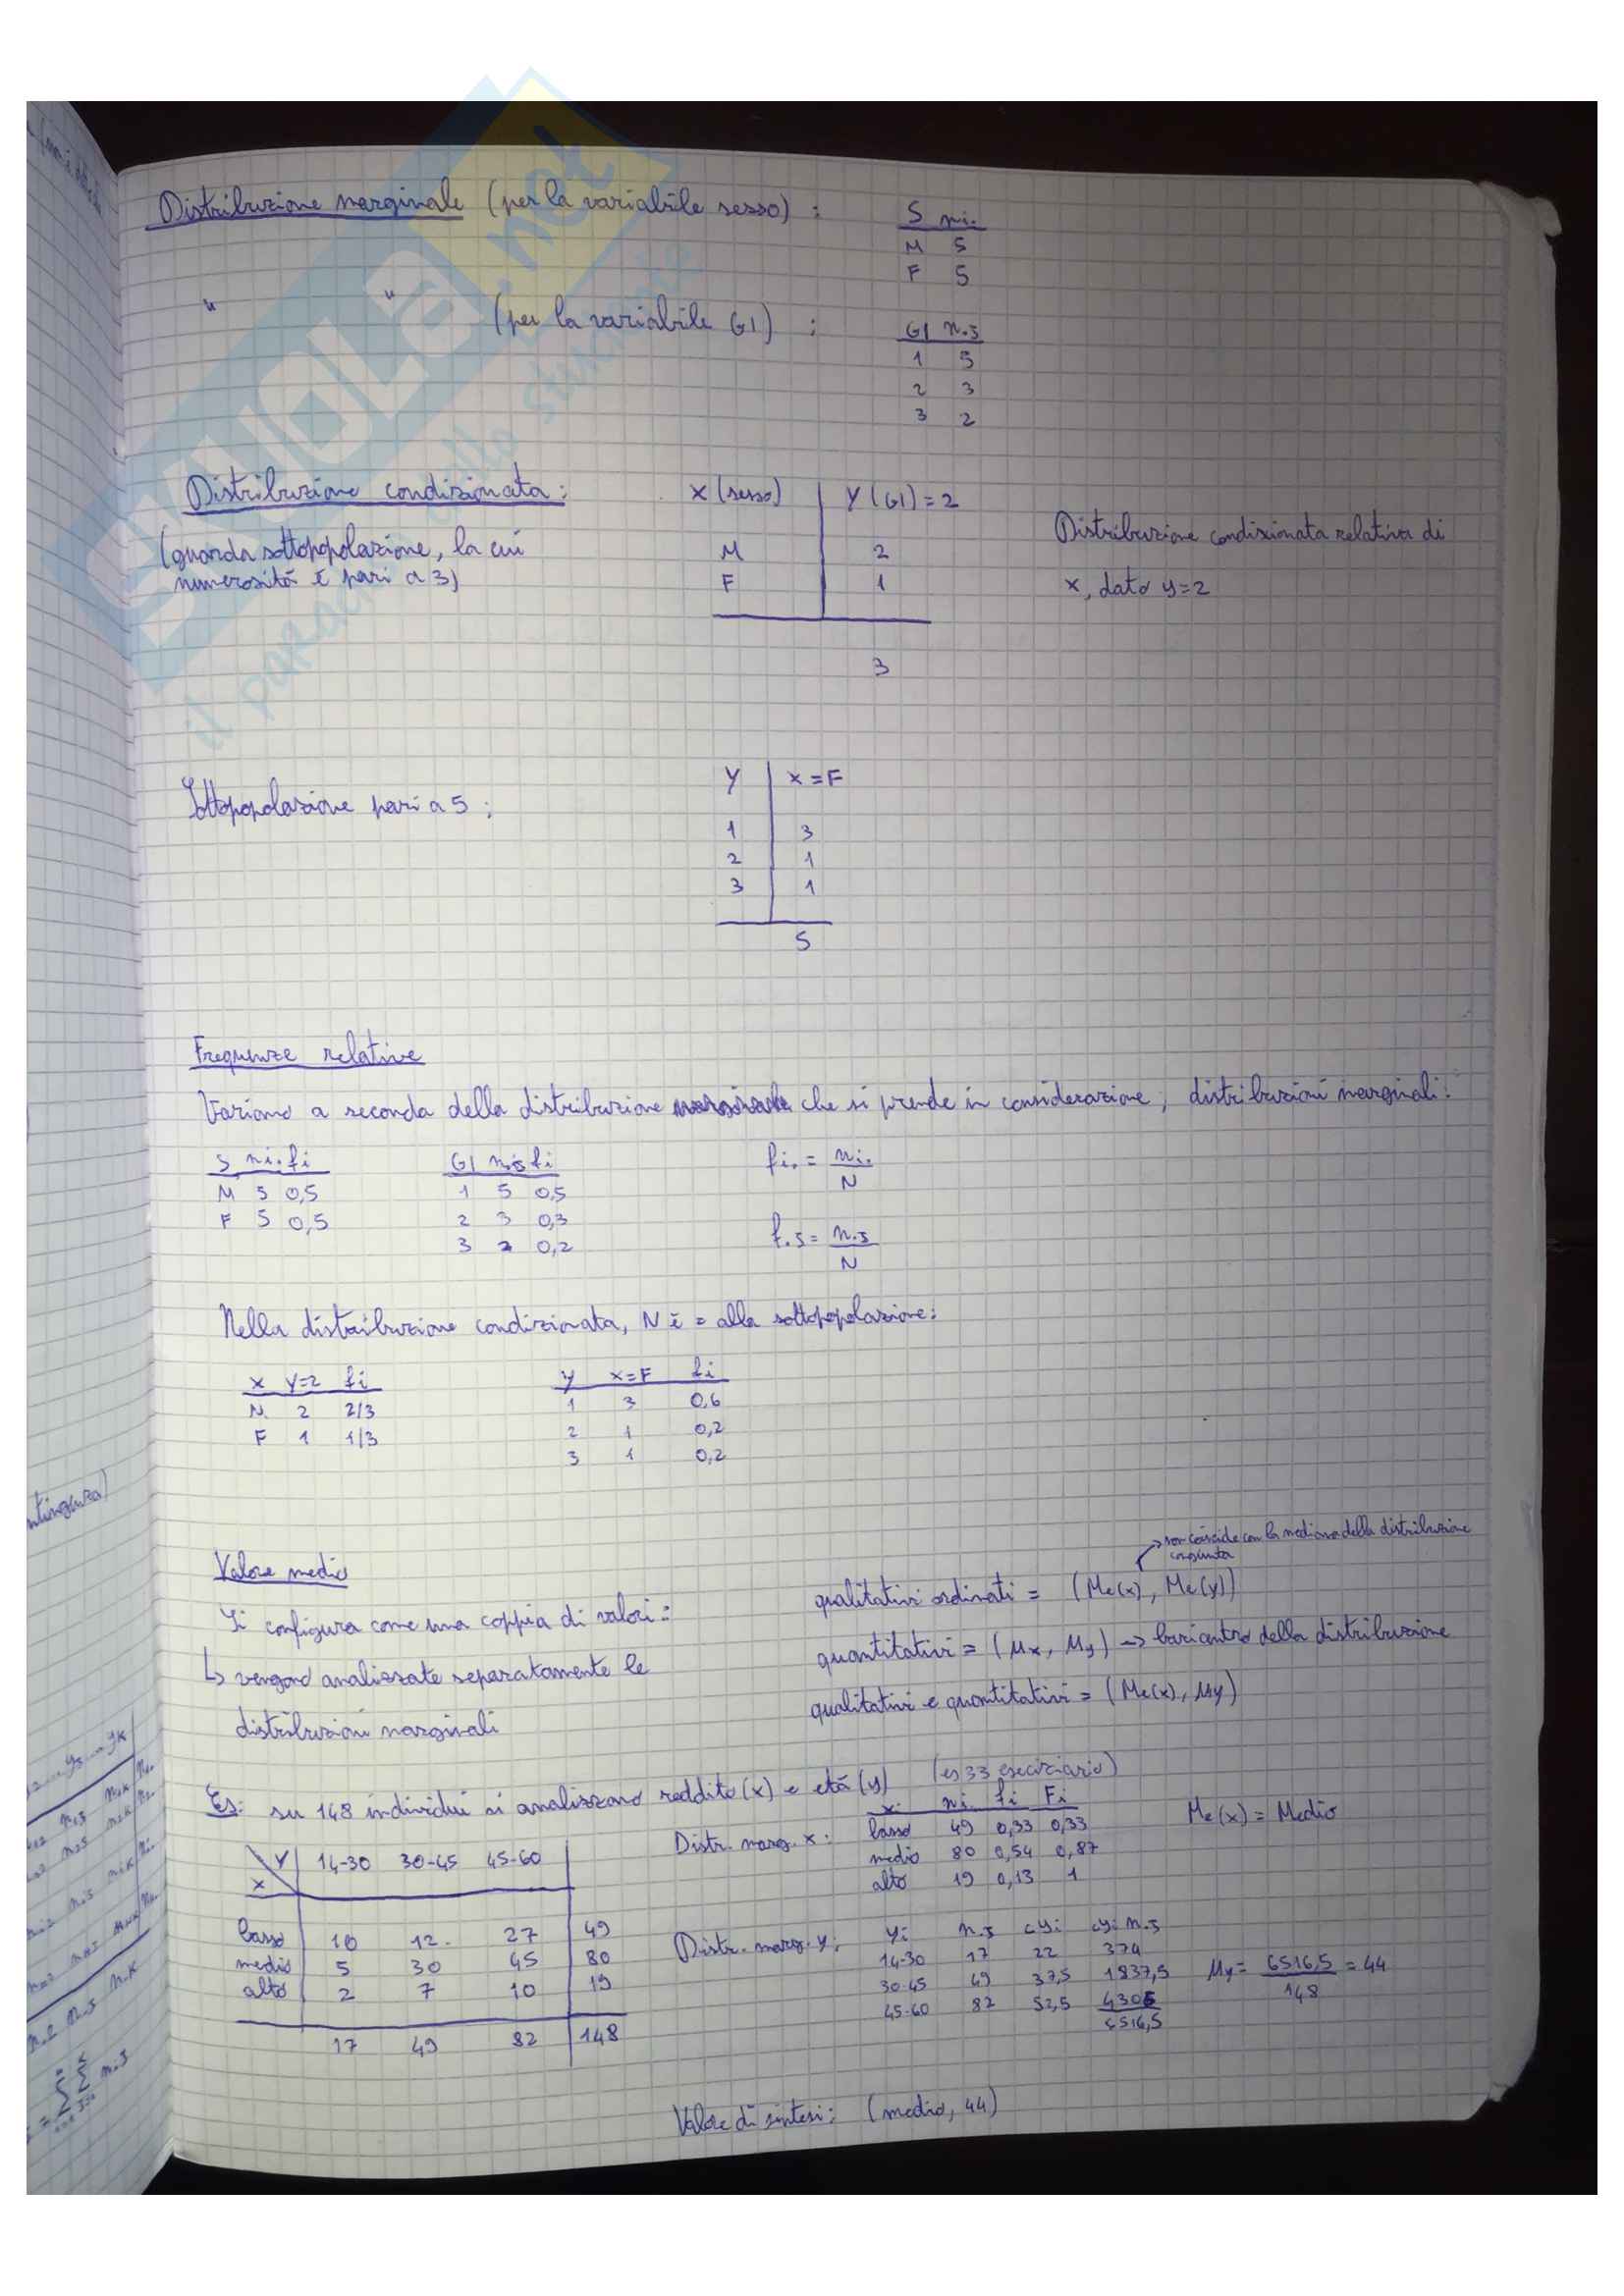 Distribuzione marginale (per la variabile sesso) :
S ni.
M 5
F 5
" " (per la variabile G1) :
G1 n.j
1 5
2 3
3 2
Distribuzione condizionata:
(guarda sottopopolazione, la cui
numerosità è pari a 3)
X (sesso) Y (G1) = 2
M 2
F 1
3
Distribuzione condizionata relativa di
x, dato y=2
Sottopopolazione pari a 5 :
Y x = F
1 3
2 1
3 1
5
Frequenze relative
Variano a seconda della distribuzione che si prende in considerazione; distribuzioni marginali:
S ni. fi
M 5 0,5
F 5 0,5
G1 n.j fi
1 5 0,5
2 3 0,3
3 2 0,2
fi. = ni. / N
f.j = n.j / N
Nella distribuzione condizionata, N è = alla sottopopolazione:
X Y=2 fi
M 2 2/3
F 1 1/3
Y x=F fi
1 3 0,6
2 1 0,2
3 1 0,2
Valore medio
Si configura come una coppia di valori:
↳ vengono analizzate separatamente le
distribuzioni marginali
→ non coincide con la mediana della distribuzione
congiunta
qualitativi ordinati = (Me(x), Me(y))
quantitativi = (μx, μy) → baricentro della distribuzione
qualitativi e quantitativi = (Me(x), μy)
Es: su 148 individui si analizzano reddito (x) e età (y) (es 33 eserciziario)
Y 14-30 30-45 45-60
X
basso 10 12 27 49
medio 5 30 45 80
alto 2 7 10 19
17 49 82 148
Distr. marg. x :
xi ni. fi Fi
basso 49 0,33 0,33
medio 80 0,54 0,87
alto 19 0,13 1
Me(x) = Medio
Distr. marg. y :
yi n.j cyi cyi n.j
14-30 17 22 374
30-45 49 37,5 1837,5
45-60 82 52,5 4305
6516,5
μy = 6516,5 / 148 = 44
Valore di sintesi : (medio, 44)
SKUOLA.net
il paradiso dello studente